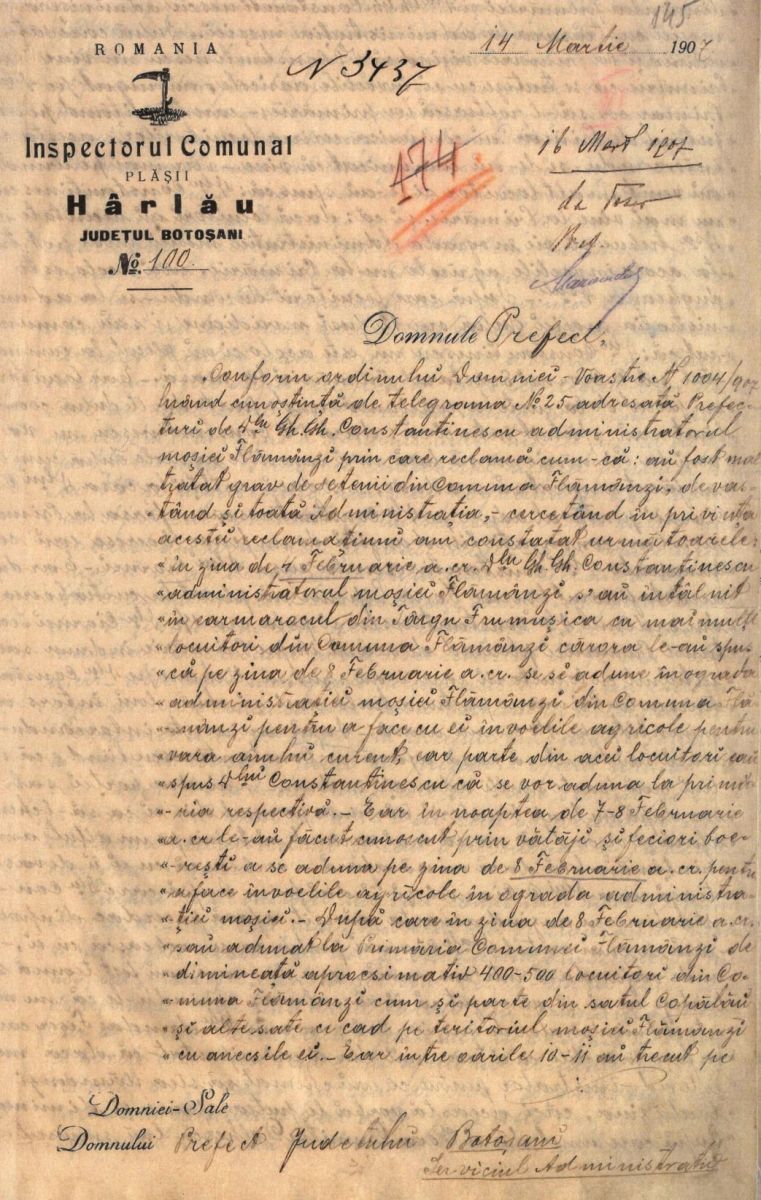 145
ROMANIA
14 Martie 1907
N 3437
Inspectorul Comunal
PLĂȘII
Hârlău
JUDEȚUL BOTOȘANI
No. 100
474
16 Mart 1907
Domnule Prefect,
Conform ordinului Domniei-Voastre N 1004/907
luând cunostintă de telegrama No 25 adresată Prefec-
turi de d-lu Gh. Gh. Constantinescu administratorul
moșiei Flămânzi prin care reclamă cum-că: au fost mal
tratat grav de setenii din Comuna Flămânzi, devas-
tând și toată Administratia,- cercetând în privinta
acestii reclamatiuni am constatat urmatoarele:
"în ziua de 7 Februarie a. cr. D-lu Gh. Gh. Constantinescu
"administratorul moșiei Flămânzi s'au întâlnit
"în earmarocul din Târgu Frumușica cu mai mulți
"locuitori din Comuna Flămânzi cărora le-au spus
"că pe ziua de 8 Februarie a. cr. se se adune în ograda
"administratiei moșiei Flămânzi din Comuna Flă
"mânzi pentru a face cu ei învoelile agricole pentru
"vara anului curent, ear parte din acei locuitori eau
"spus d-lui Constantinescu că se vor aduna la primă
"-ria respectivă.- Ear în noaptea de 7-8 Februarie
"a. cr le-au făcut cunoscut prin vătăji și feciori boe-
"-rești a se aduna pe ziua de 8 Februarie a. cr. pentru
"a face învoelile agricole în ograda administra-
"ției moșiei.- După care în ziua de 8 Februarie a. cr.
"s'au adunat la Primăria Comunei Flămânzi de
"dimineată aprocsimativ 400-500 locuitori din Co-
"muna Flămânzi cum și parte din satul Cohălău
"și alte sate ce cad pe teritoriul moșiei Flămânzi
"cu anecsile ei.- Ear între oarile 10-11 au trecut pe
Domniei-Sale
Domnului Prefect Judetului Botoșani
Serviciul Administrativ